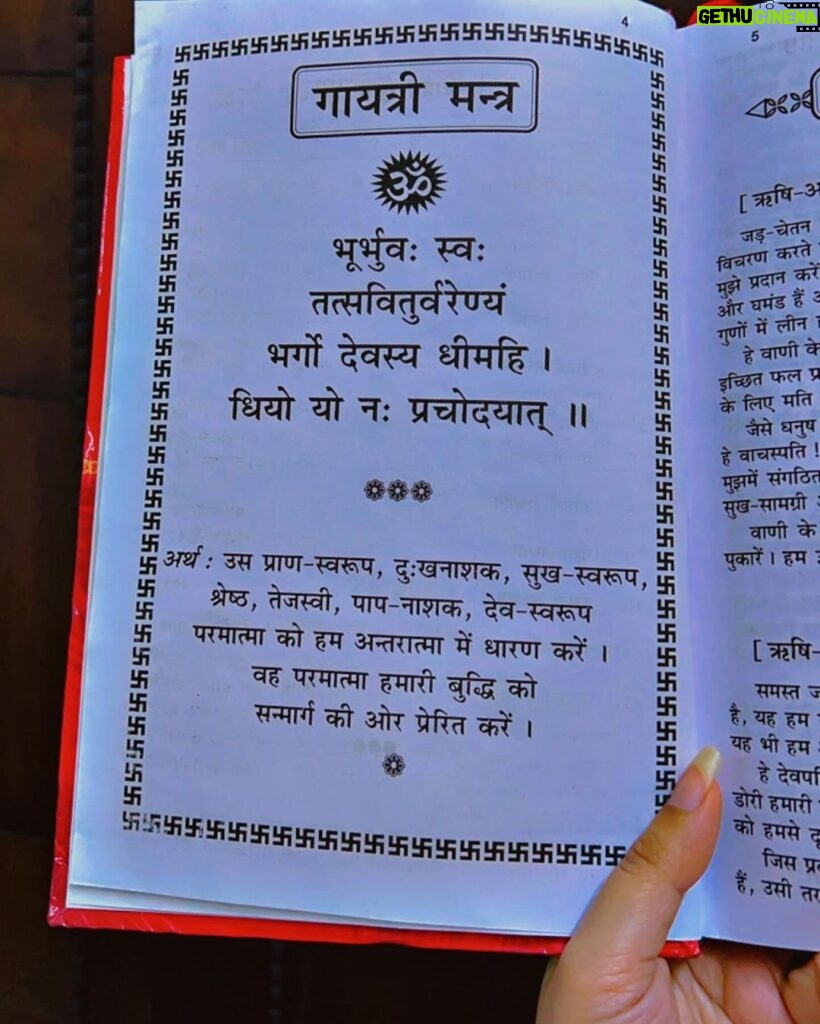 GETHUCINEMA
4
गायत्री मन्त्र
ॐ
भूर्भुवः स्वः
तत्सवितुर्वरेण्यं
भर्गो देवस्य धीमहि ।
धियो यो नः प्रचोदयात् ॥
अर्थ : उस प्राण-स्वरूप, दुःखनाशक, सुख-स्वरूप,
श्रेष्ठ, तेजस्वी, पाप-नाशक, देव-स्वरूप
परमात्मा को हम अन्तरात्मा में धारण करें ।
वह परमात्मा हमारी बुद्धि को
सन्मार्ग की ओर प्रेरित करें ।
5
[ ऋषि-
जड़-चेतन
विचरण करते
मुझे प्रदान करें
और घमंड हैं
गुणों में लीन
हे वाणी के
इच्छित फल
के लिए मति
जैसे धनुष
हे वाचस्पति !
मुझमें संगठित
सुख-सामग्री
वाणी के
पुकारें । हम
[ ऋषि-
समस्त
है, यह हम
यह भी हम
हे
डोरी हमारी
को हमसे
जिस
हैं, उसी